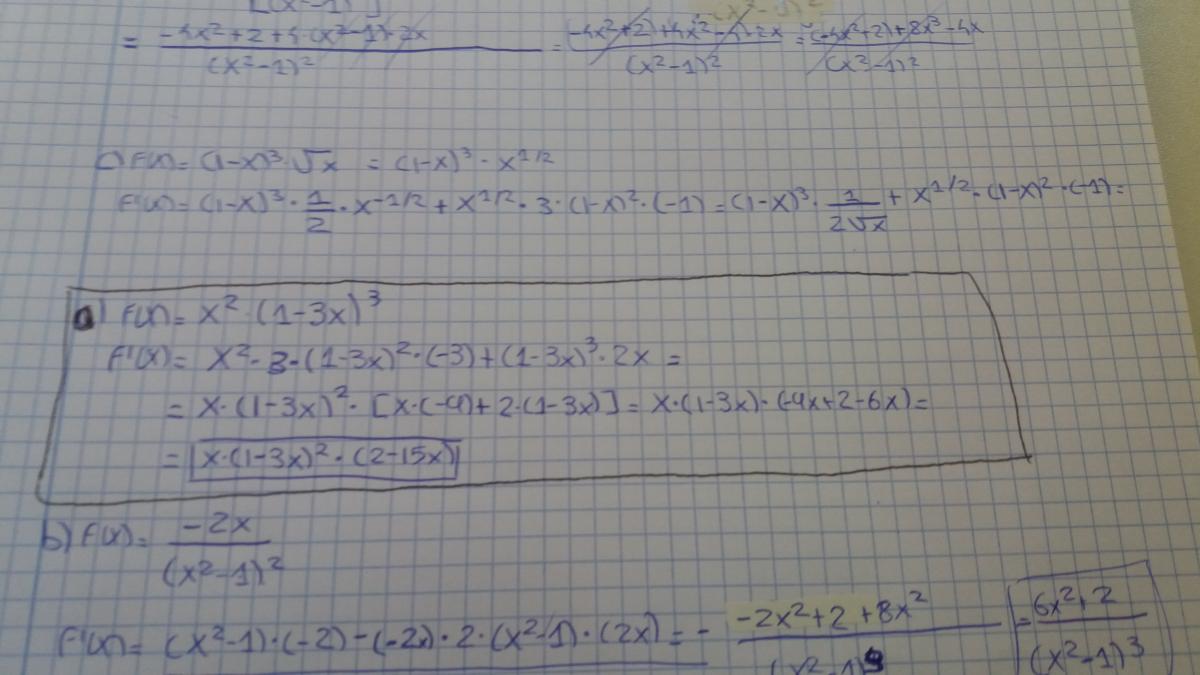 = -4x²+2+4·(x²-1)·2x / (x²-1)² = -4x²+2)+4x²-4·2x / (x²-1)² = (-4x²+2)+8x³-4x / (x²-1)²
c) F(x)= (1-x)³·√x = (1-x)³·x^1/2
F'(x)= (1-x)³·1/2·x^-1/2 + x^1/2·3·(1-x)²·(-1) = (1-x)³·1/2√x + x^1/2·(1-x)²·(-1)=
a) F(x)= x²·(1-3x)³
F'(x)= x²·3·(1-3x)²·(-3)+(1-3x)³·2x =
= x·(1-3x)²·[x·(-9)+2·(1-3x)] = x·(1-3x)·(-9x+2-6x)=
= x·(1-3x)²·(2-15x)
b) F(x)= -2x / (x²-1)²
F'(x)= (x²-1)·(-2)-(-2x)·2·(x²-1)·(2x) = - -2x²+2+8x² / = 6x²+2 / (x²-1)³